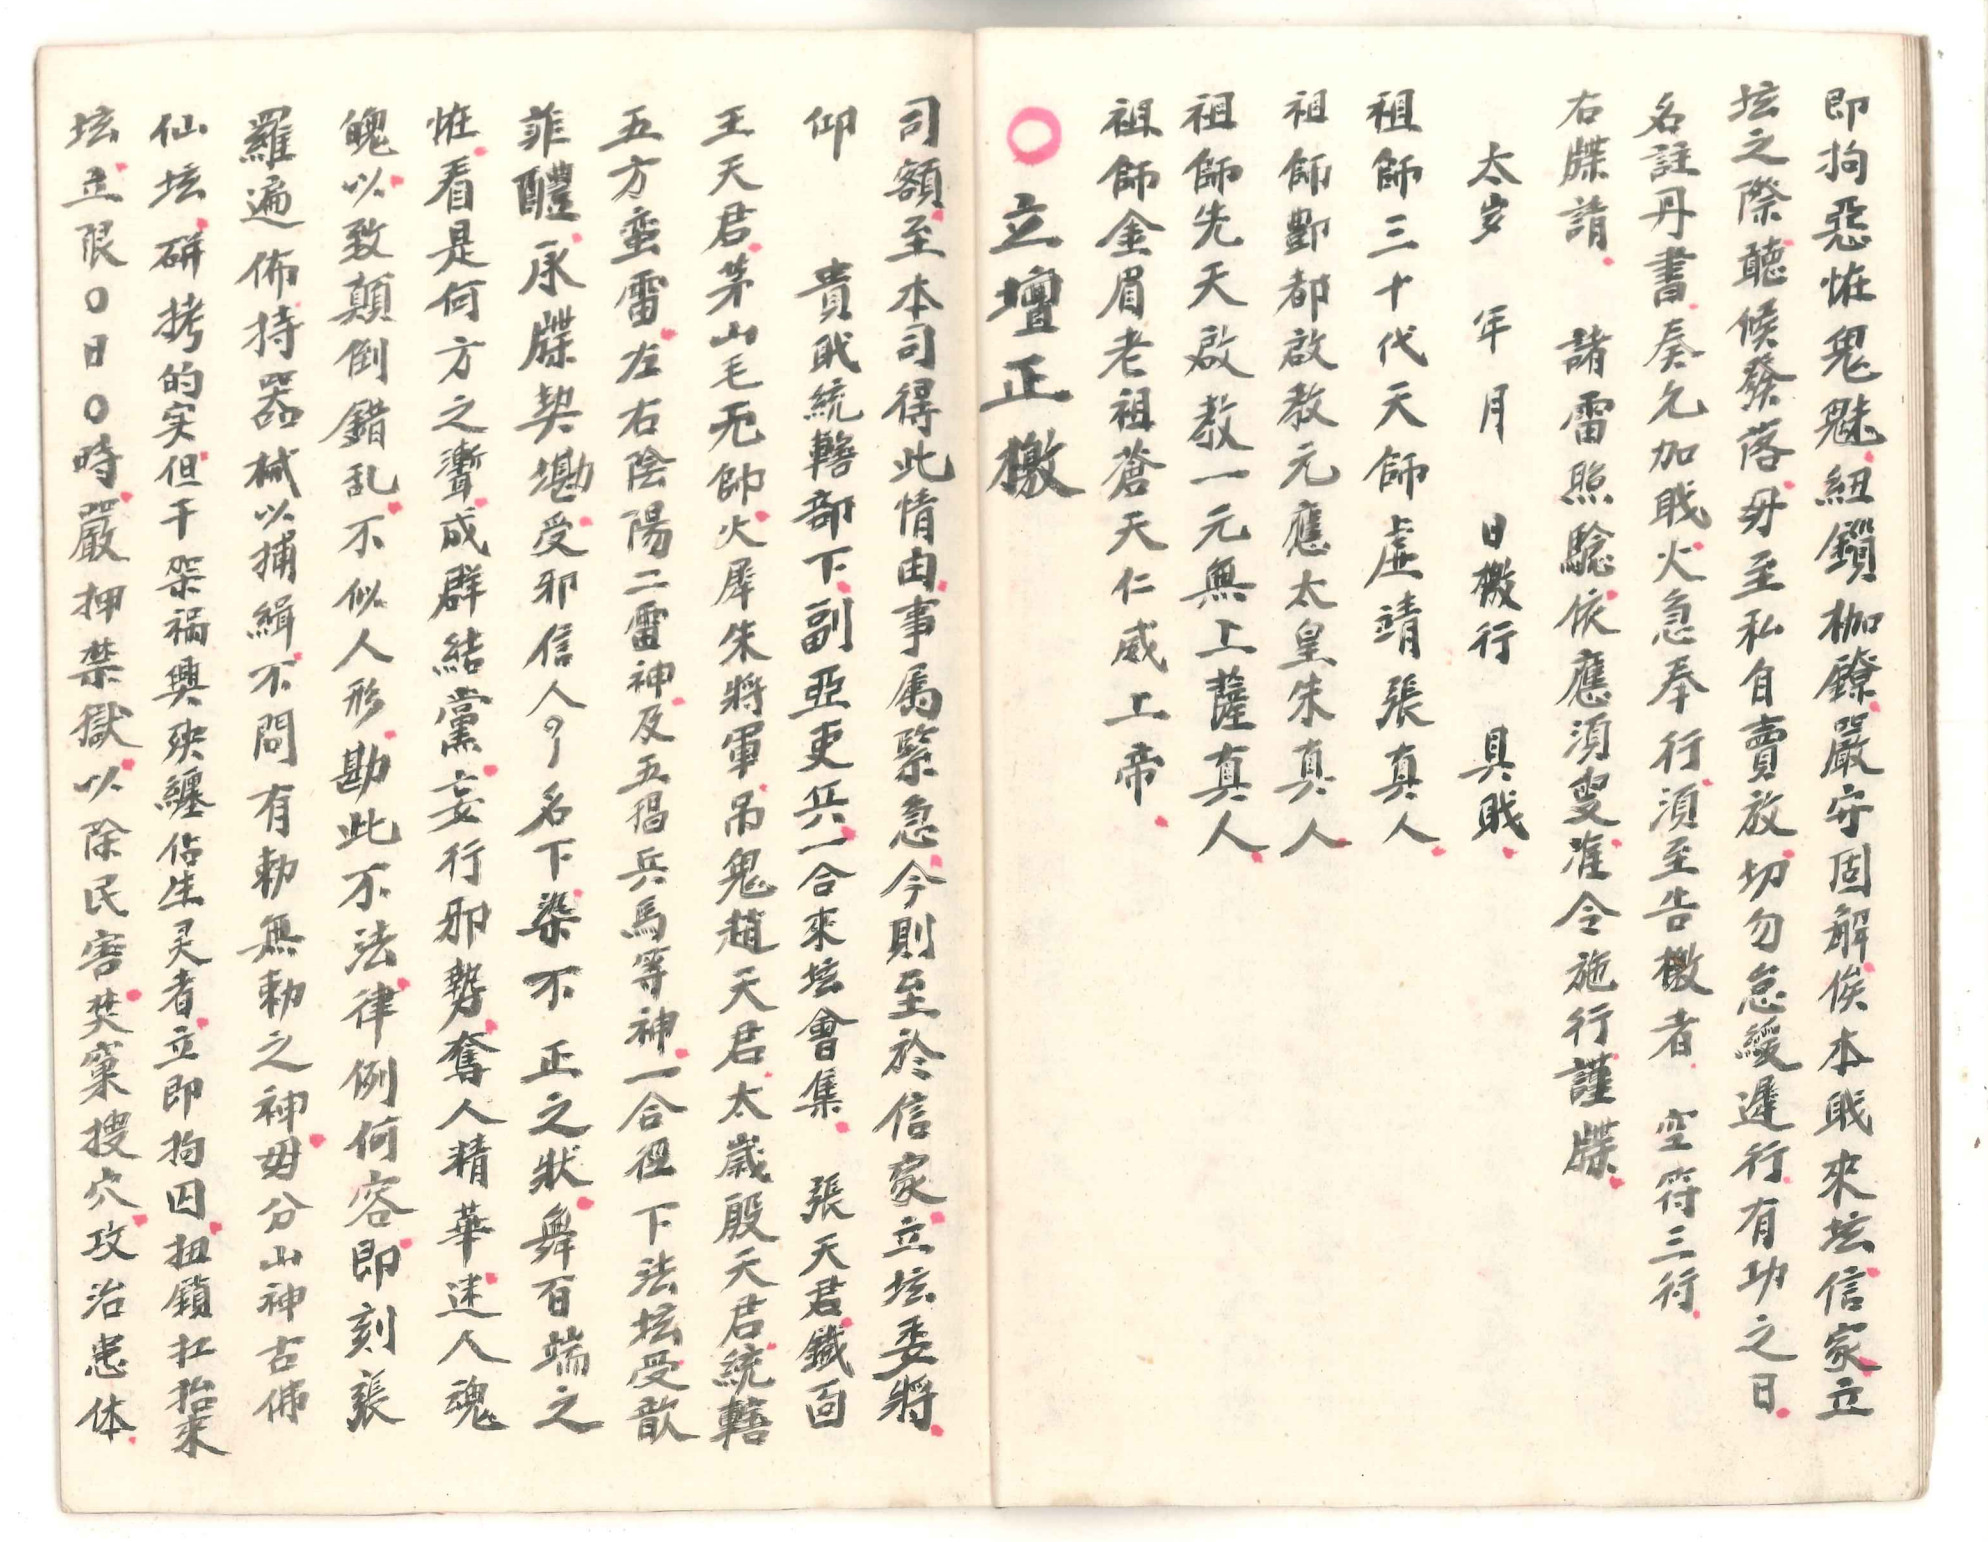 即拘惡恠鬼魅紐鎖枷鐐嚴守固解俟本戝來坛信家立
坛之際聽候發落毋至私自賣放切勿怠緩遲行有功之日
名註丹書奏乞加戝火急奉行湏至告檄者 空符三行
右牒請 諸雷照騐依應湏㕛准令施行謹牒
太岁 年 月 日檄行 具戝
祖師三十代天師虛靖張真人
祖師酆都啟教元應太皇朱真人
祖師先天啟教一元無上薩真人
祖師金眉老祖蒼天仁威上帝
〇立壇正檄
司額至本司得此情由事属緊急今則至於信家立坛委將
仰 貴戝統轄部下副亞吏兵一合來坛會集 張天君鐵面
王天君茅山毛元帥火犀朱將軍吊鬼趙天君太歲殷天君統轄
五方蛮雷左右陰陽二雷神及五猖兵馬等神一合徑下法坛受歆
菲醴承牒契勘受邪信人〇名下染不正之狀舞百端之
恠看是何方之讐成群結黨妄行邪勢奪人精華迷人魂
魄以致顛倒錯乱不似人形勘此不法律例何容即刻張
羅遍佈持器械以捕緝不問有勅無勅之神毋分山神古佛
仙坛研拷的实但干架禍興殃纏佔生灵者立即拘囚扭鎖扛抬來
坛立限〇日〇時嚴押禁獄以除民害焚窠搜穴攻治患体